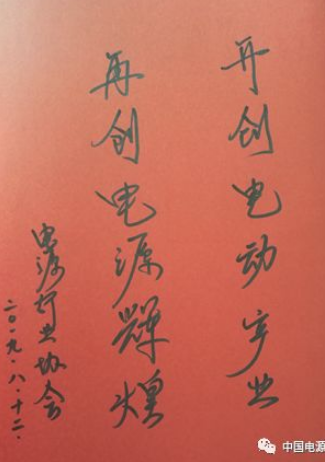 开创电动产业
再创电源辉煌
电源行业协会
二〇一九.八.十二.
中国电源